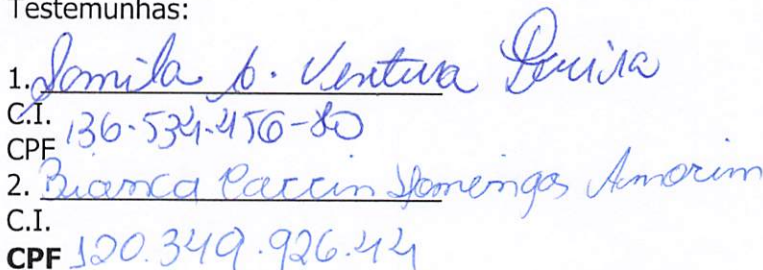 Testemunhas:
1. Jamila b. Ventura Pereira
C.I.
CPF 136-534-456-80
2. Bianca Carrin Domingos Amorim
C.I.
CPF 120.349.926.44